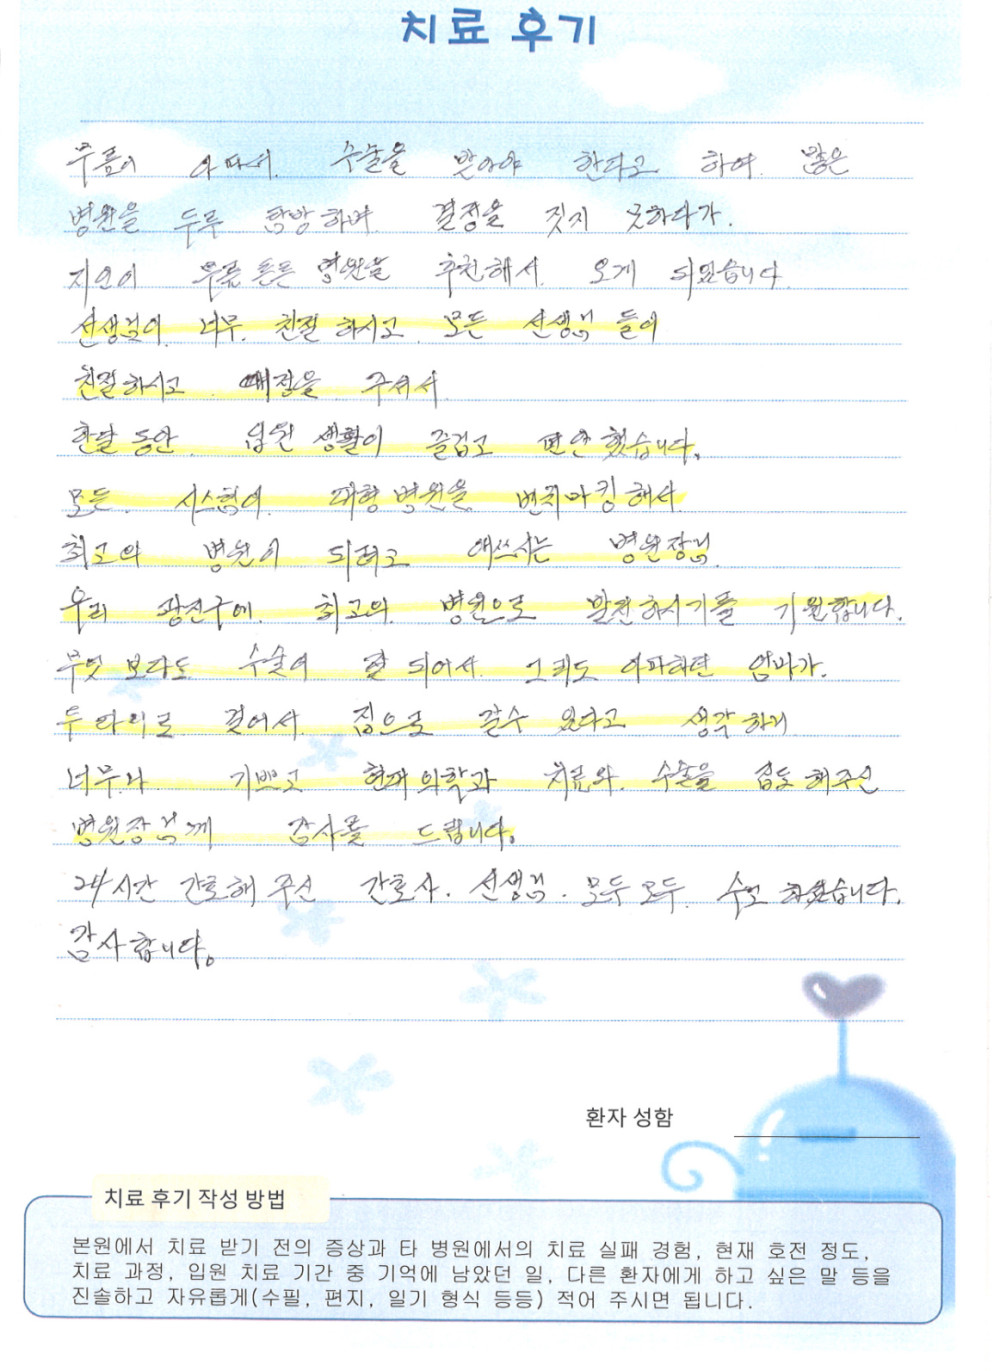 치료 후기
무릎이 아파서 수술을 받아야 한다고 하여 많은
병원을 두루 탐방하며 결정을 짓지 못하다가.
지인이 무릎 튼튼 병원을 추천해서 오게 되었습니다
선생님이 너무 친절 하시고 모든 선생님 들이
친절하시고 애정을 주셔서
한달 동안 입원 생활이 즐겁고 편안했습니다.
모든 시스템이 대형병원을 벤치마킹해서
최고의 병원이 되려고 애쓰시는 병원장님
우리 광진구에 최고의 병원으로 발전하시기를 기원합니다.
무엇 보다도 수술이 잘 되어서 그리도 아파하던 엄마가.
두 다리로 걸어서 집으로 갈수 있다고 생각하니
너무나 기쁘고 현재의학과 치료와 수술을 집도해주신
병원장님께 감사를 드립니다.
24시간 간호해 주신 간호사. 선생님. 모두모두 수고 하셨습니다.
감사합니다.
환자 성함
치료 후기 작성 방법
본원에서 치료 받기 전의 증상과 타 병원에서의 치료 실패 경험, 현재 호전 정도,
치료 과정, 입원 치료 기간 중 기억에 남았던 일, 다른 환자에게 하고 싶은 말 등을
진솔하고 자유롭게(수필, 편지, 일기 형식 등등) 적어 주시면 됩니다.